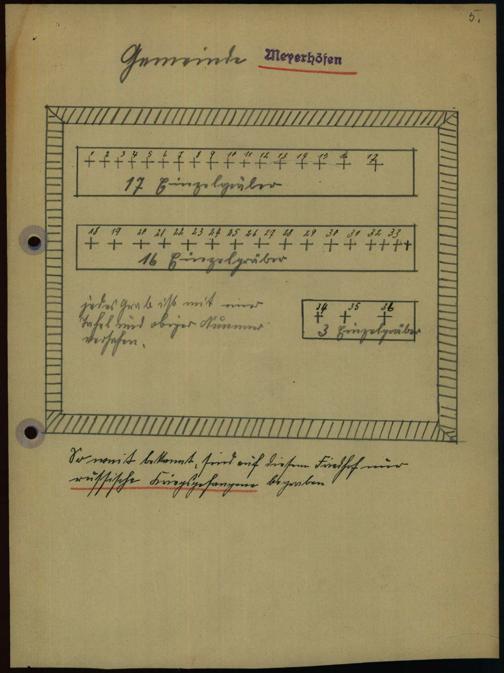 5.
Gemeinde Meyerhöfen
1 2 3 4 5 6 7 8 9 10 11 12 13 14 15 16 17
17 Einzelgräber
18 19 20 21 22 23 24 25 26 27 28 29 30 31 32 33
16 Einzelgräber
jedes Grab ist mit einer
Tafel und obiger Nummer
versehen.
34 35 36
3 Einzelgräber
So weit bekannt, sind auf diesem Friedhof nur
russische Kriegsgefangene begraben